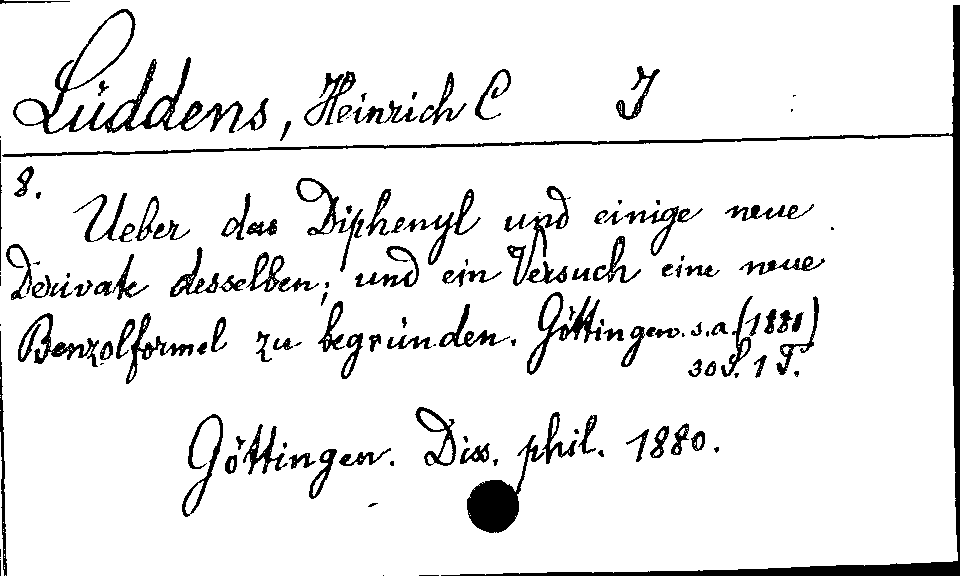 Lüddens, Heinrich C J
8.
Ueber das Diphenyl und einige neue
Derivate desselben; und ein Versuch eine neue
Benzolformel zu begründen. Göttingen. s.a. (1880)
30 S. 1 T.
Göttingen. Diss. phil. 1880.